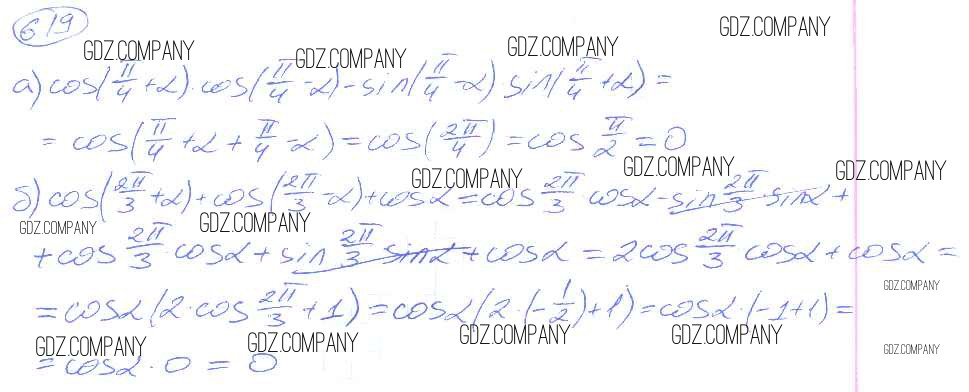 619
GDZ.COMPANY GDZ.COMPANY GDZ.COMPANY GDZ.COMPANY
а) cos(π/4 + α) · cos(π/4 - α) - sin(π/4 - α) sin(π/4 + α) =
= cos(π/4 + α + π/4 - α) = cos(2π/4) = cos π/2 = 0
GDZ.COMPANY GDZ.COMPANY GDZ.COMPANY
б) cos(2π/3 + α) + cos(2π/3 - α) + cos α = cos 2π/3 · cos α - sin 2π/3 · sin α +
GDZ.COMPANY GDZ.COMPANY
+ cos 2π/3 · cos α + sin 2π/3 sin α + cos α = 2cos 2π/3 cos α + cos α =
GDZ.COMPANY
= cos α (2 · cos 2π/3 + 1) = cos α (2 · (-1/2) + 1) = cos α · (-1 + 1) =
GDZ.COMPANY GDZ.COMPANY GDZ.COMPANY GDZ.COMPANY GDZ.COMPANY
= cos α · 0 = 0